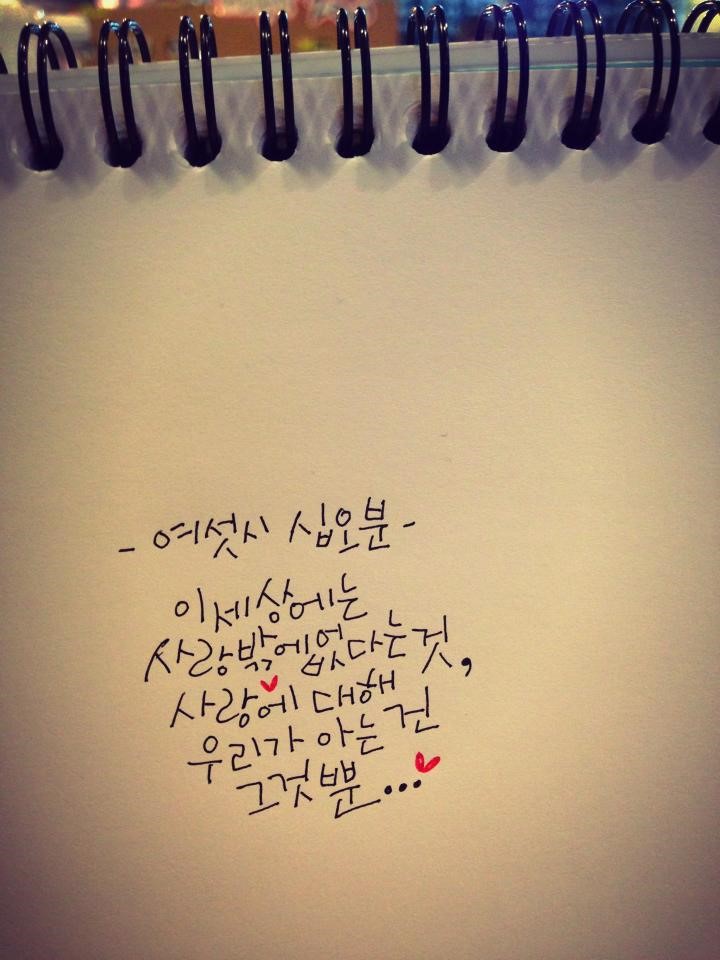 - 여섯시 십오분 -
이세상에는
사랑밖에없다는것,
사랑에 대해
우리가 아는 건
그것뿐...